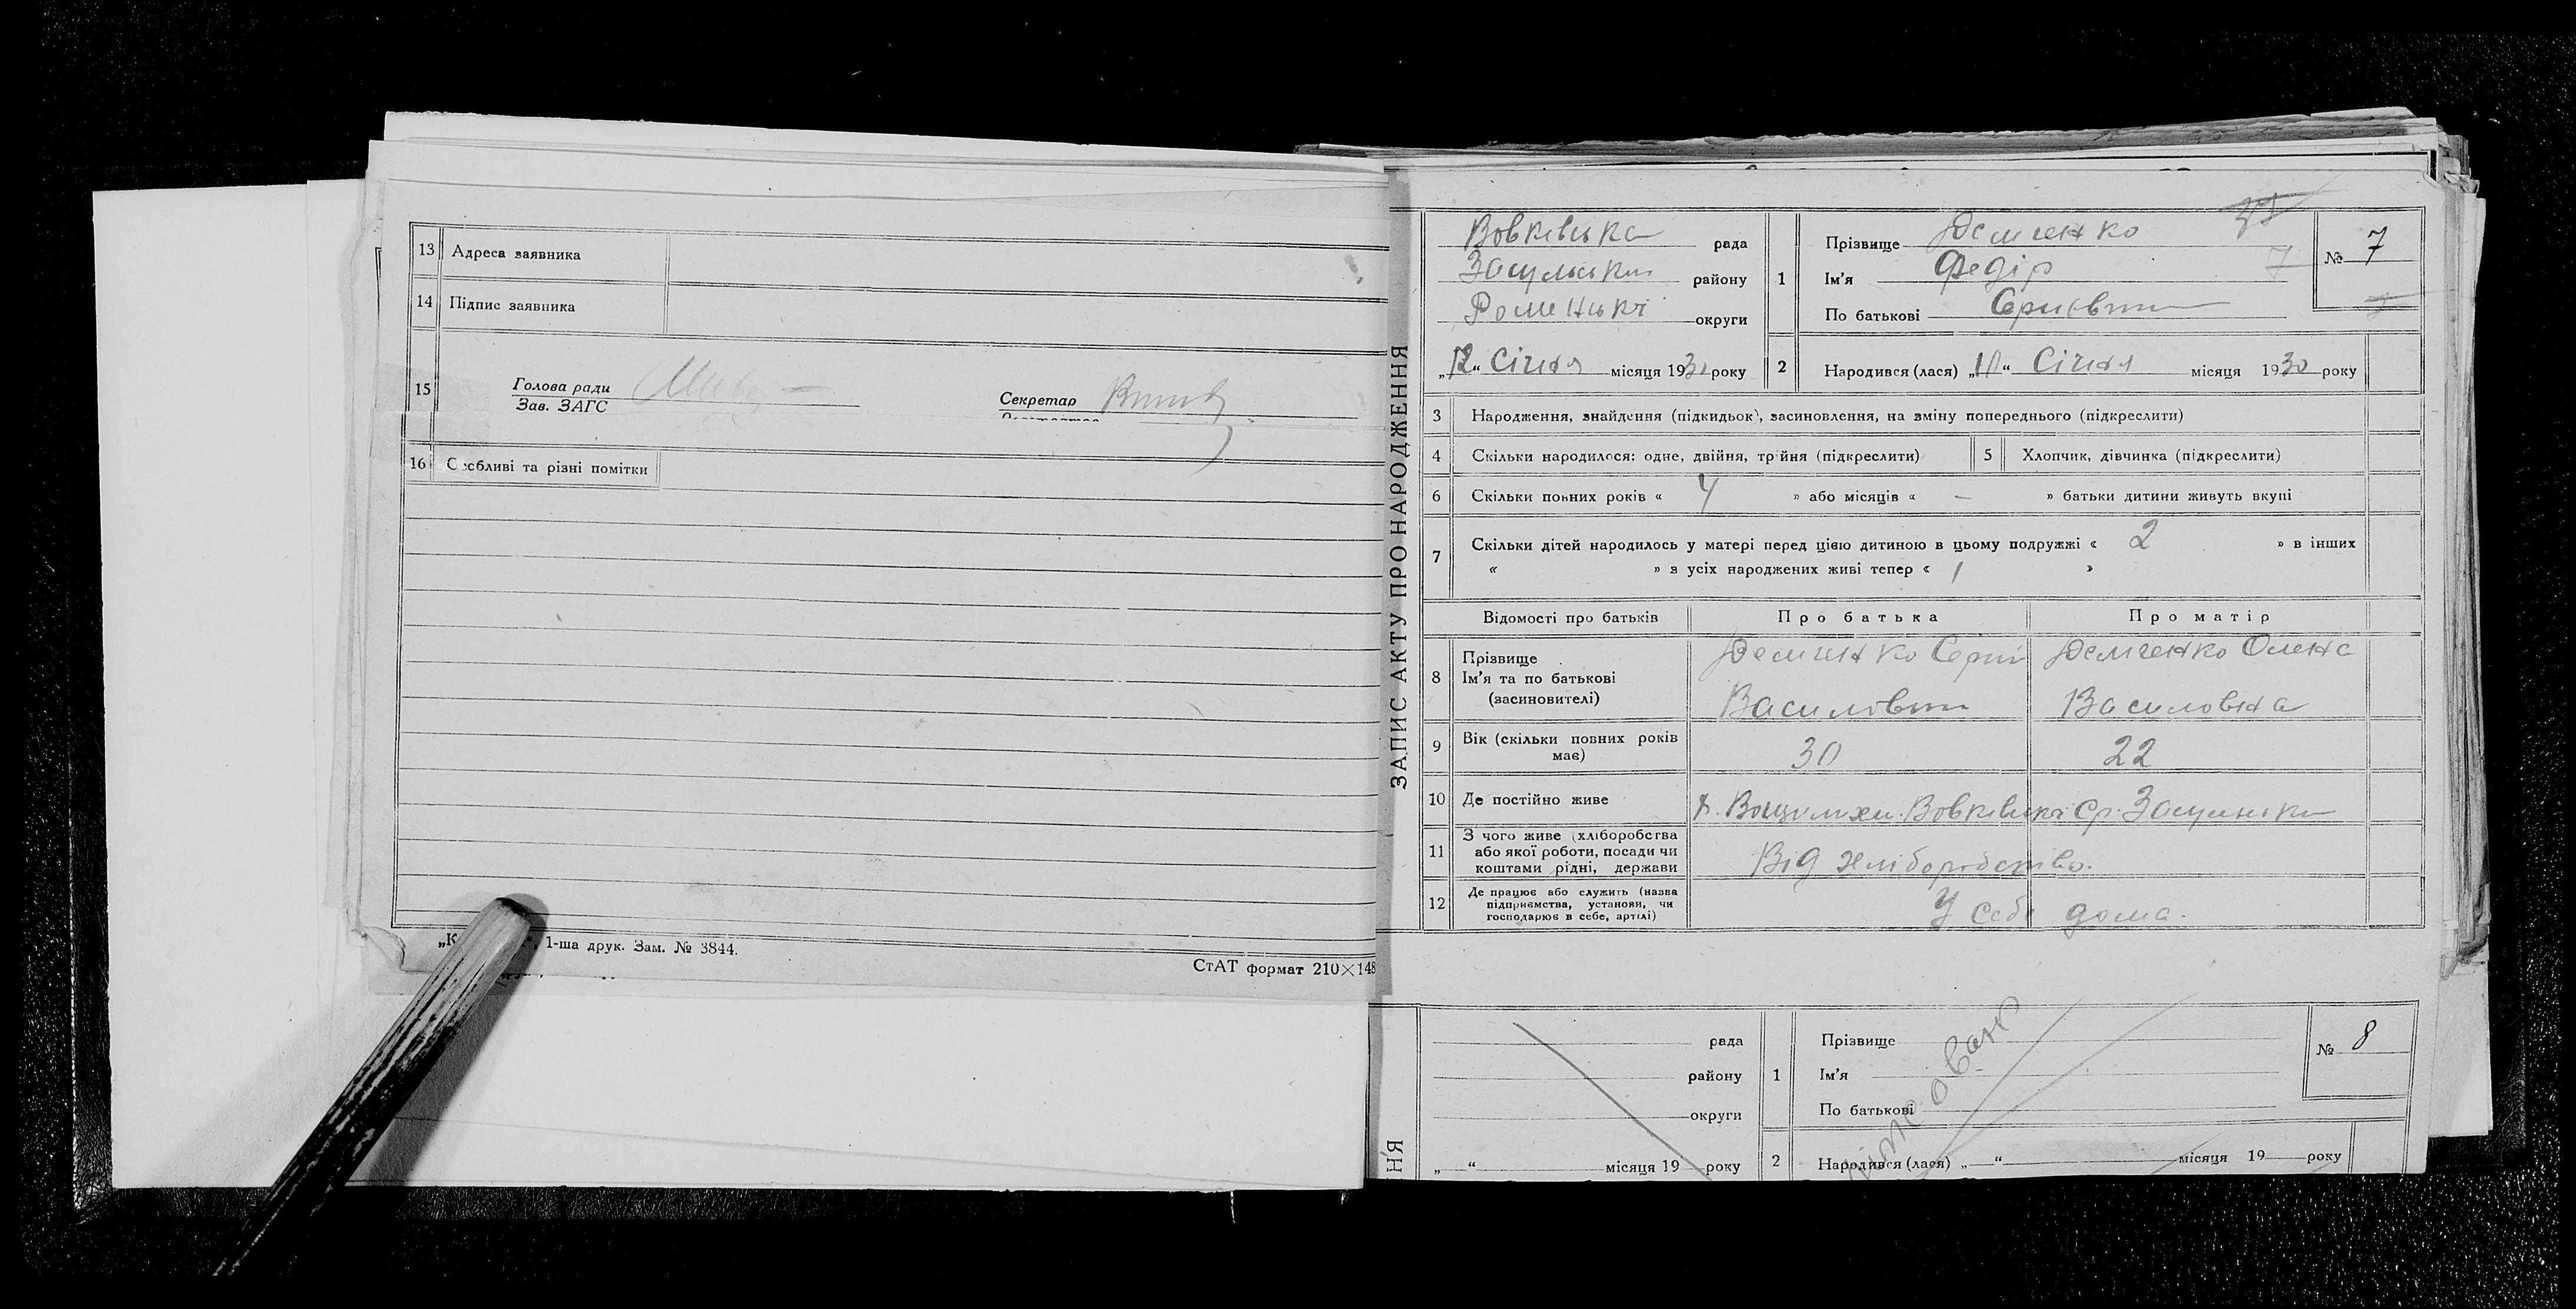 13 Адреса заявника
14 Підпис заявника
15 Голова ради
Зав. ЗАГС
Секретар
16 Особливі та різні помітки
1-ша друк. Зам. № 3844.
СтАТ формат 210×148
ЗАПИС АКТУ ПРО НАРОДЖЕННЯ
Вовківська рада
Засульськи району
Роменські округи
„12“ Січня місяця 1930 року
1 Прізвище Демченко
Ім'я Федір
По батькові Сергієвич
№ 7
7
2 Народився (лася) „10“ Січня місяця 1930 року
3 Народження, знайдення (підкидьок), засиновлення, на зміну попереднього (підкреслити)
4 Скільки народилося: одне, двійня, трійня (підкреслити) 5 Хлопчик, дівчинка (підкреслити)
6 Скільки повних років « 4 » або місяців « — » батьки дитини живуть вкупі
7 Скільки дітей народилось у матері перед цією дитиною в цьому подружжі « 2 » в інших
« » з усіх народжених живі тепер « 1 »
Відомості про батьків Про батька Про матір
8 Прізвище
Ім'я та по батькові
(засиновителі)
Демченко Сергій
Василович
Демченко Олена
Василовна
9 Вік (скільки повних років має) 30 22
10 Де постійно живе Вовківські с/р. Засульськи
11 З чого живе (хліборобства
або якої роботи, посади чи
коштами рідні, держави
Від хліборобство.
12 Де працює або служить (назва
підприємства, установи, чи
господарює в себе, артілі)
У себе дома.
НЯ
рада
району
округи
„ “ місяця 19 року
1 Прізвище
Ім'я
По батькові
№ 8
2 Народився (лася) „ “ місяця 19 року